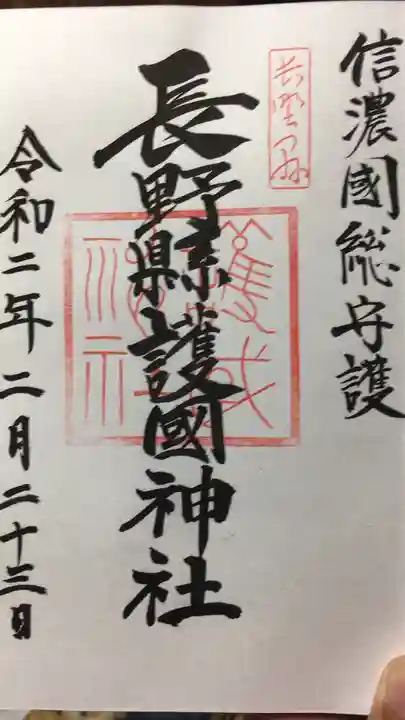 信濃國総守護
長野縣
長野縣護國神社
令和二年二月二十三日